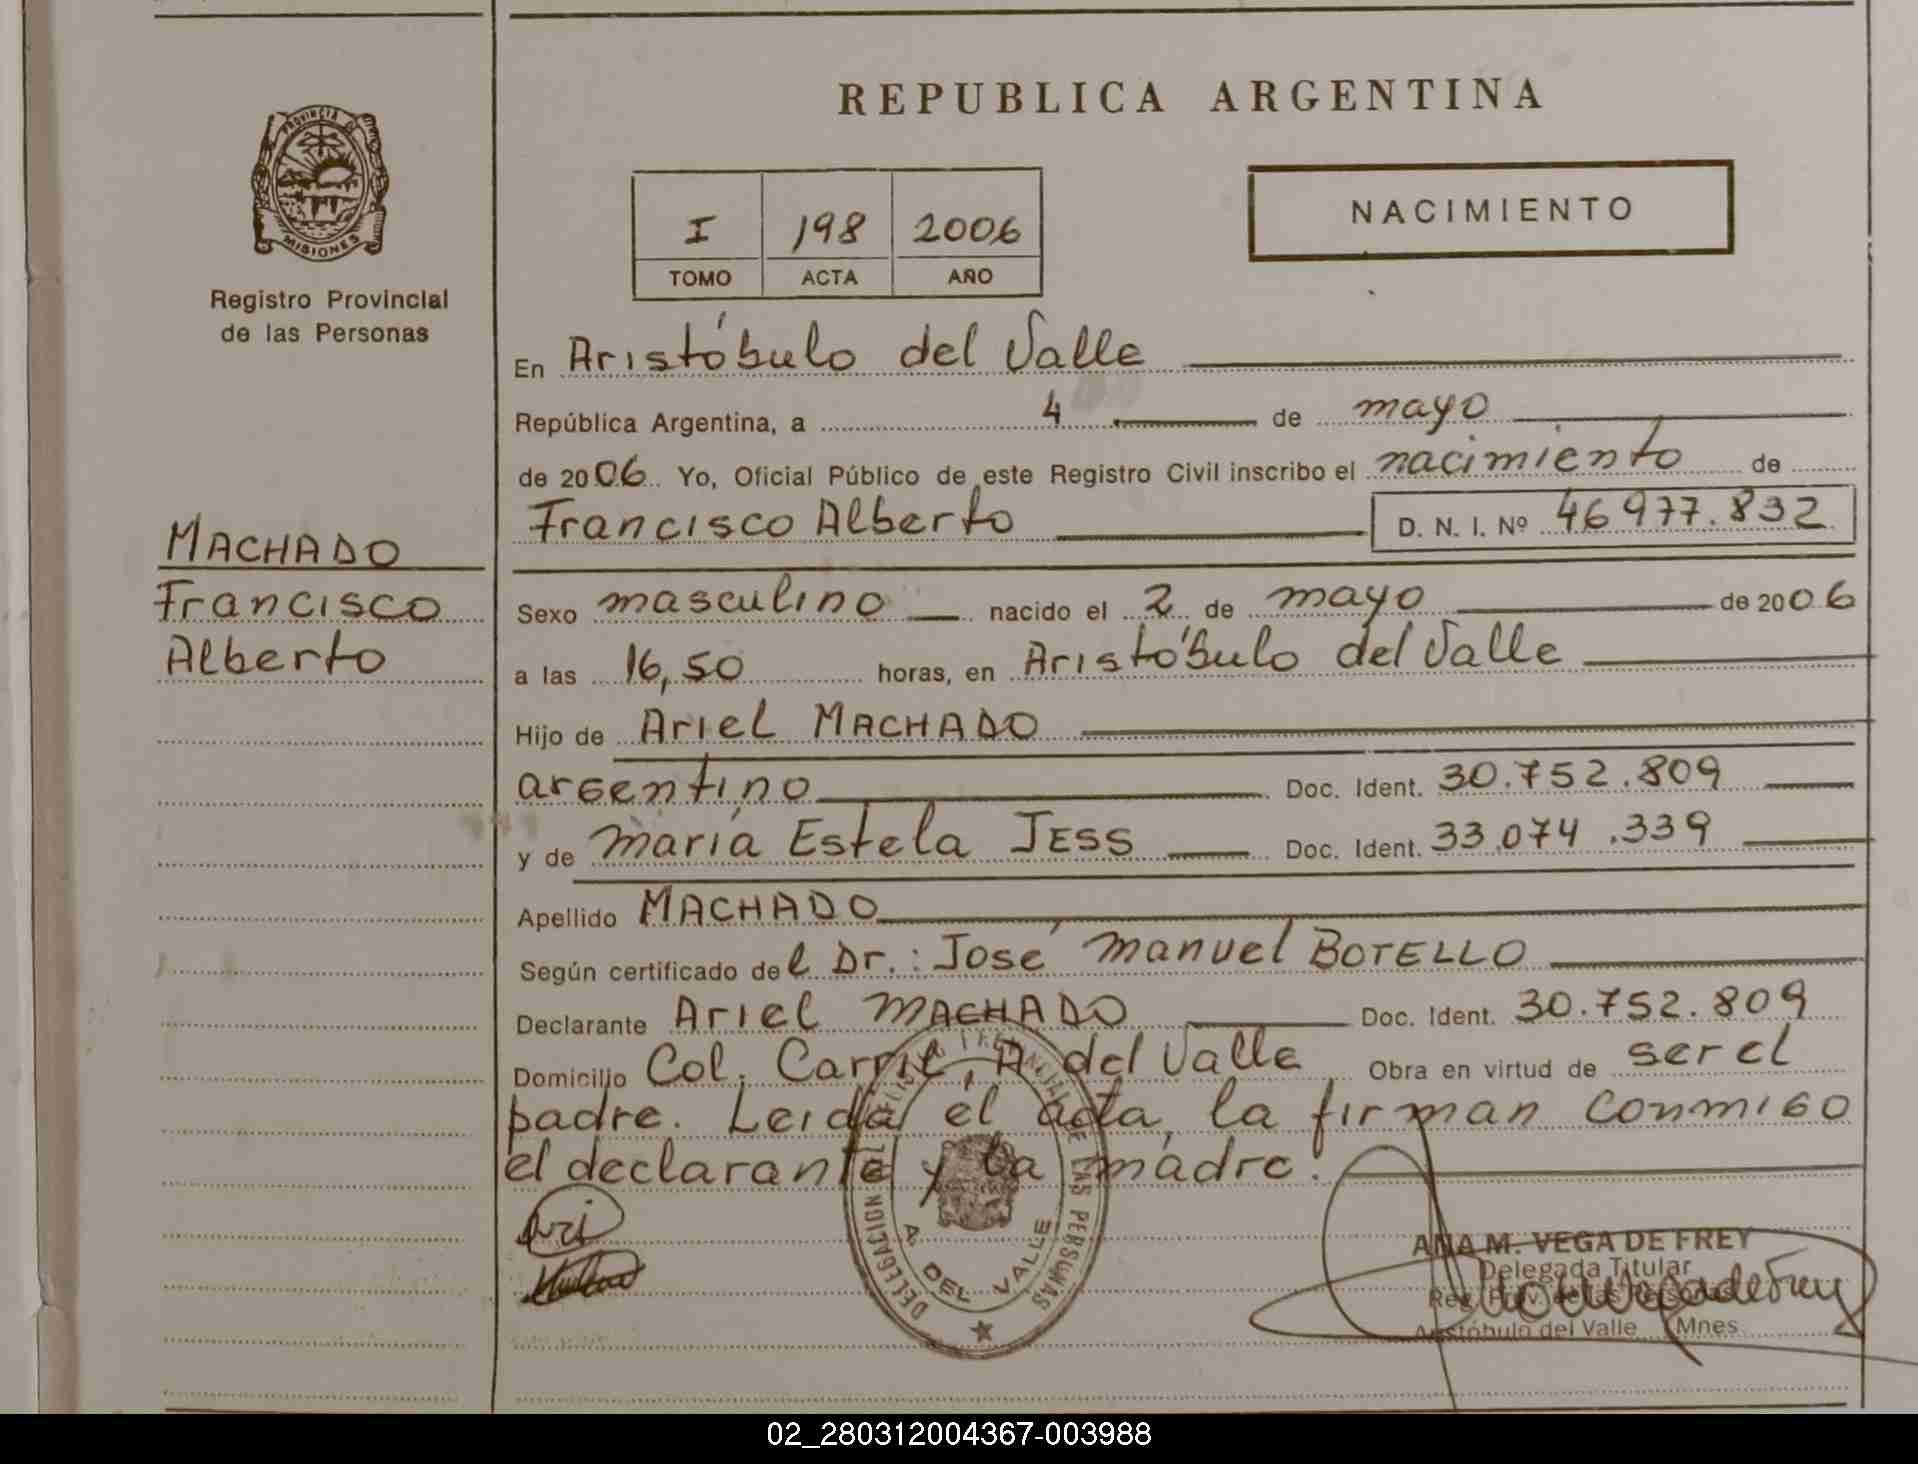 REPUBLICA ARGENTINA
PROVINCIA DE
MISIONES
Registro Provincial
de las Personas
I 198 2006
TOMO ACTA AÑO
NACIMIENTO
En Aristóbulo del Valle
República Argentina, a 4 de mayo
de 2006 Yo, Oficial Público de este Registro Civil inscribo el nacimiento de
Francisco Alberto D. N. I. Nº 46977.832
MACHADO
Francisco
Alberto
Sexo masculino nacido el 2 de mayo de 2006
a las 16,50 horas, en Aristóbulo del Valle
Hijo de Ariel MACHADO
argentino Doc. Ident. 30.752.809
y de María Estela JESS Doc. Ident. 33.074.339
Apellido MACHADO
Según certificado del Dr.: José Manuel BOTELLO
Declarante Ariel MACHADO Doc. Ident. 30.752.809
Domicilio Col. Carril, A del Valle Obra en virtud de ser el
padre. Leida el acta, la firman conmigo
el declarante y la madre.
Ari
DELEGACION
DE LAS PERSONAS
A. DEL VALLE
ANA M. VEGA DE FREY
Delegada Titular
Aristóbulo del Valle Mnes
02_280312004367-003988